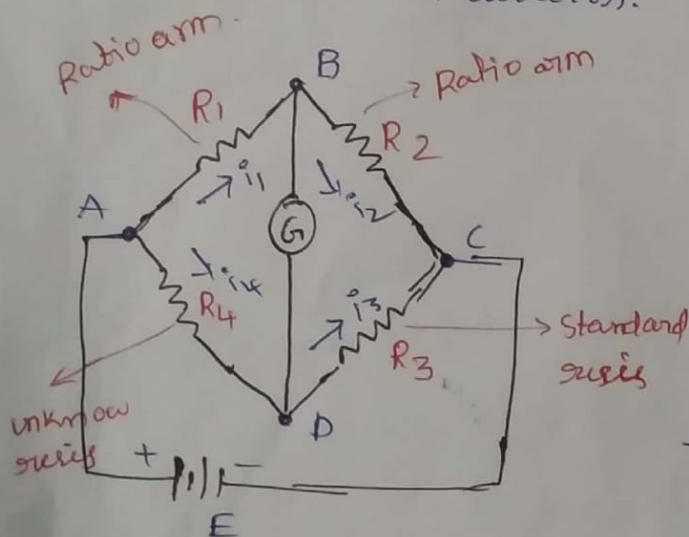 Ratio arm.
B
Ratio arm
R1
R2
i1
i2
A
G
C
i4
i3
R4
R3
Standard
resis
unknow
resis
D
+
-
E